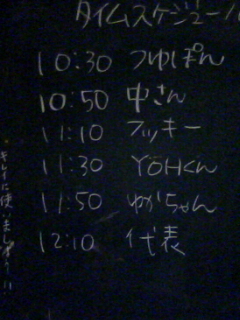 タイムスケジュール
10:30 つゆぽん
10:50 中さん
11:10 フッキー
11:30 YOHくん
11:50 ゆかちゃん
12:10 代表
きれいに使いましょう!!